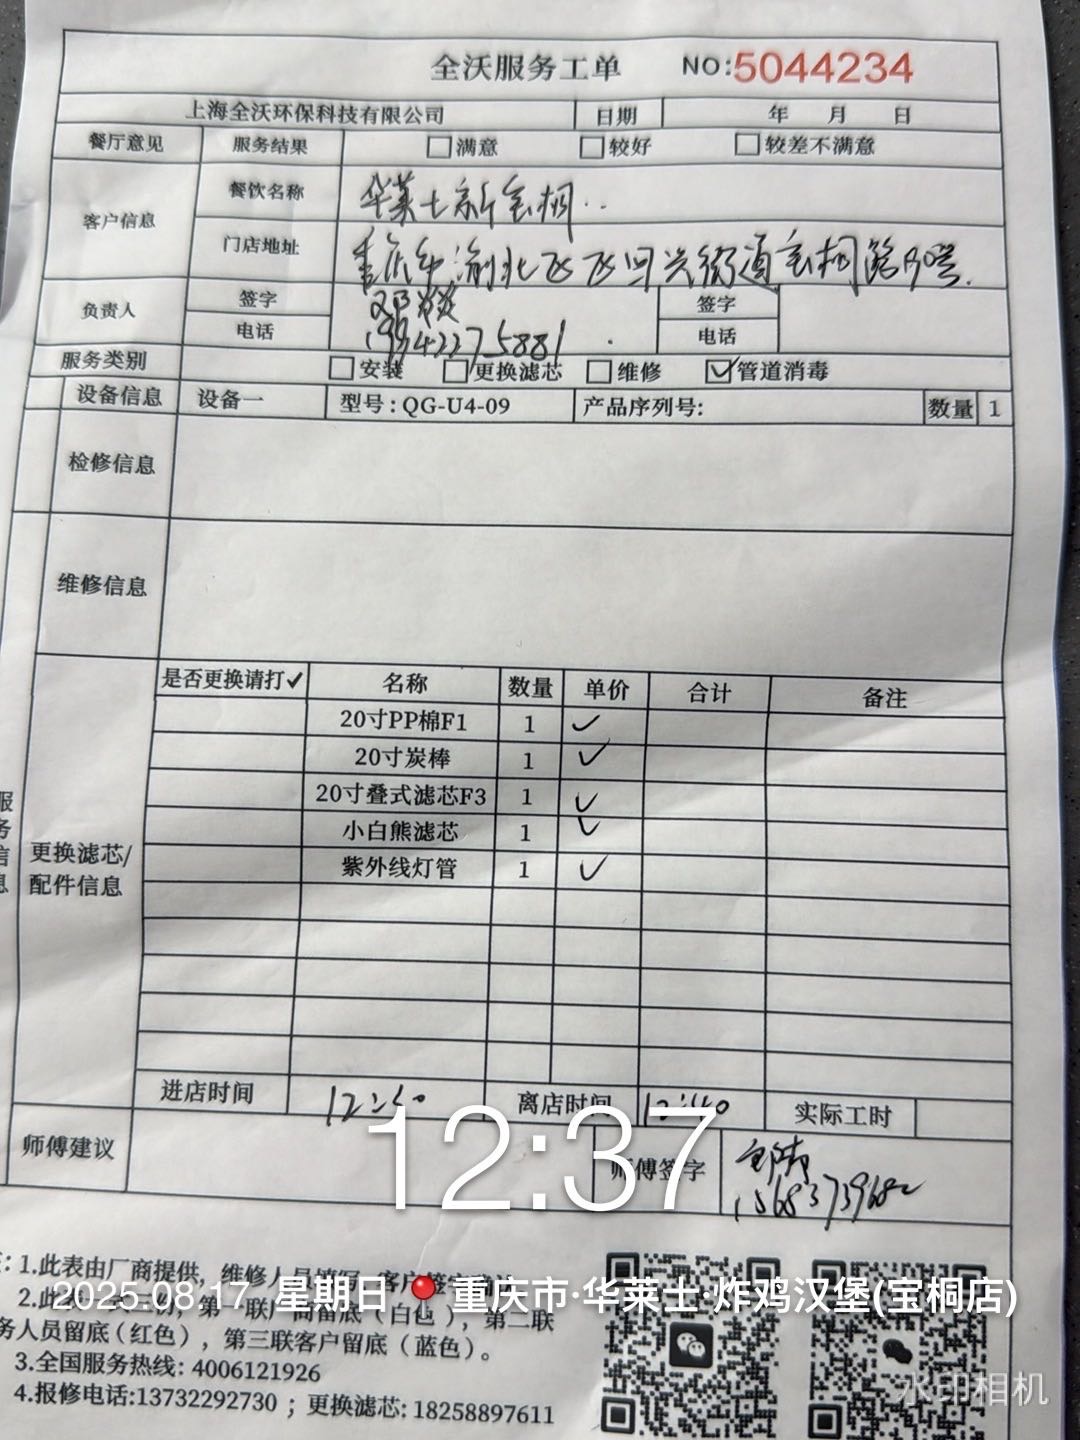 全沃服务工单 NO:5044234
上海全沃环保科技有限公司 日期 年 月 日
餐厅意见 服务结果 满意 较好 较差不满意
客户信息 餐饮名称 华莱士新宝桐
门店地址 重庆市渝北区 回兴街道宝桐路
负责人 签字 签字
电话 19942275881 电话
服务类别 安装 更换滤芯 维修 ✓管道消毒
设备信息 设备一 型号:QG-U4-09 产品序列号: 数量 1
检修信息
维修信息
是否更换请打✓ 名称 数量 单价 合计 备注
20寸PP棉F1 1 ✓
20寸炭棒 1 ✓
20寸叠式滤芯F3 1 ✓
小白熊滤芯 1 ✓
紫外线灯管 1 ✓
服务信息
更换滤芯/
配件信息
进店时间 离店时间 12:40 实际工时
师傅建议 师傅签字
15683739682
12:37
1.此表由厂商提供,维修人员填写,客户签字
2.此 第一联厂商留底(白色),第二联
务人员留底(红色),第三联客户留底(蓝色)。
3.全国服务热线: 4006121926
4.报修电话:13732292730 ; 更换滤芯: 18258897611
2025.08.17 星期日 重庆市·华莱士·炸鸡汉堡(宝桐店)
水印相机